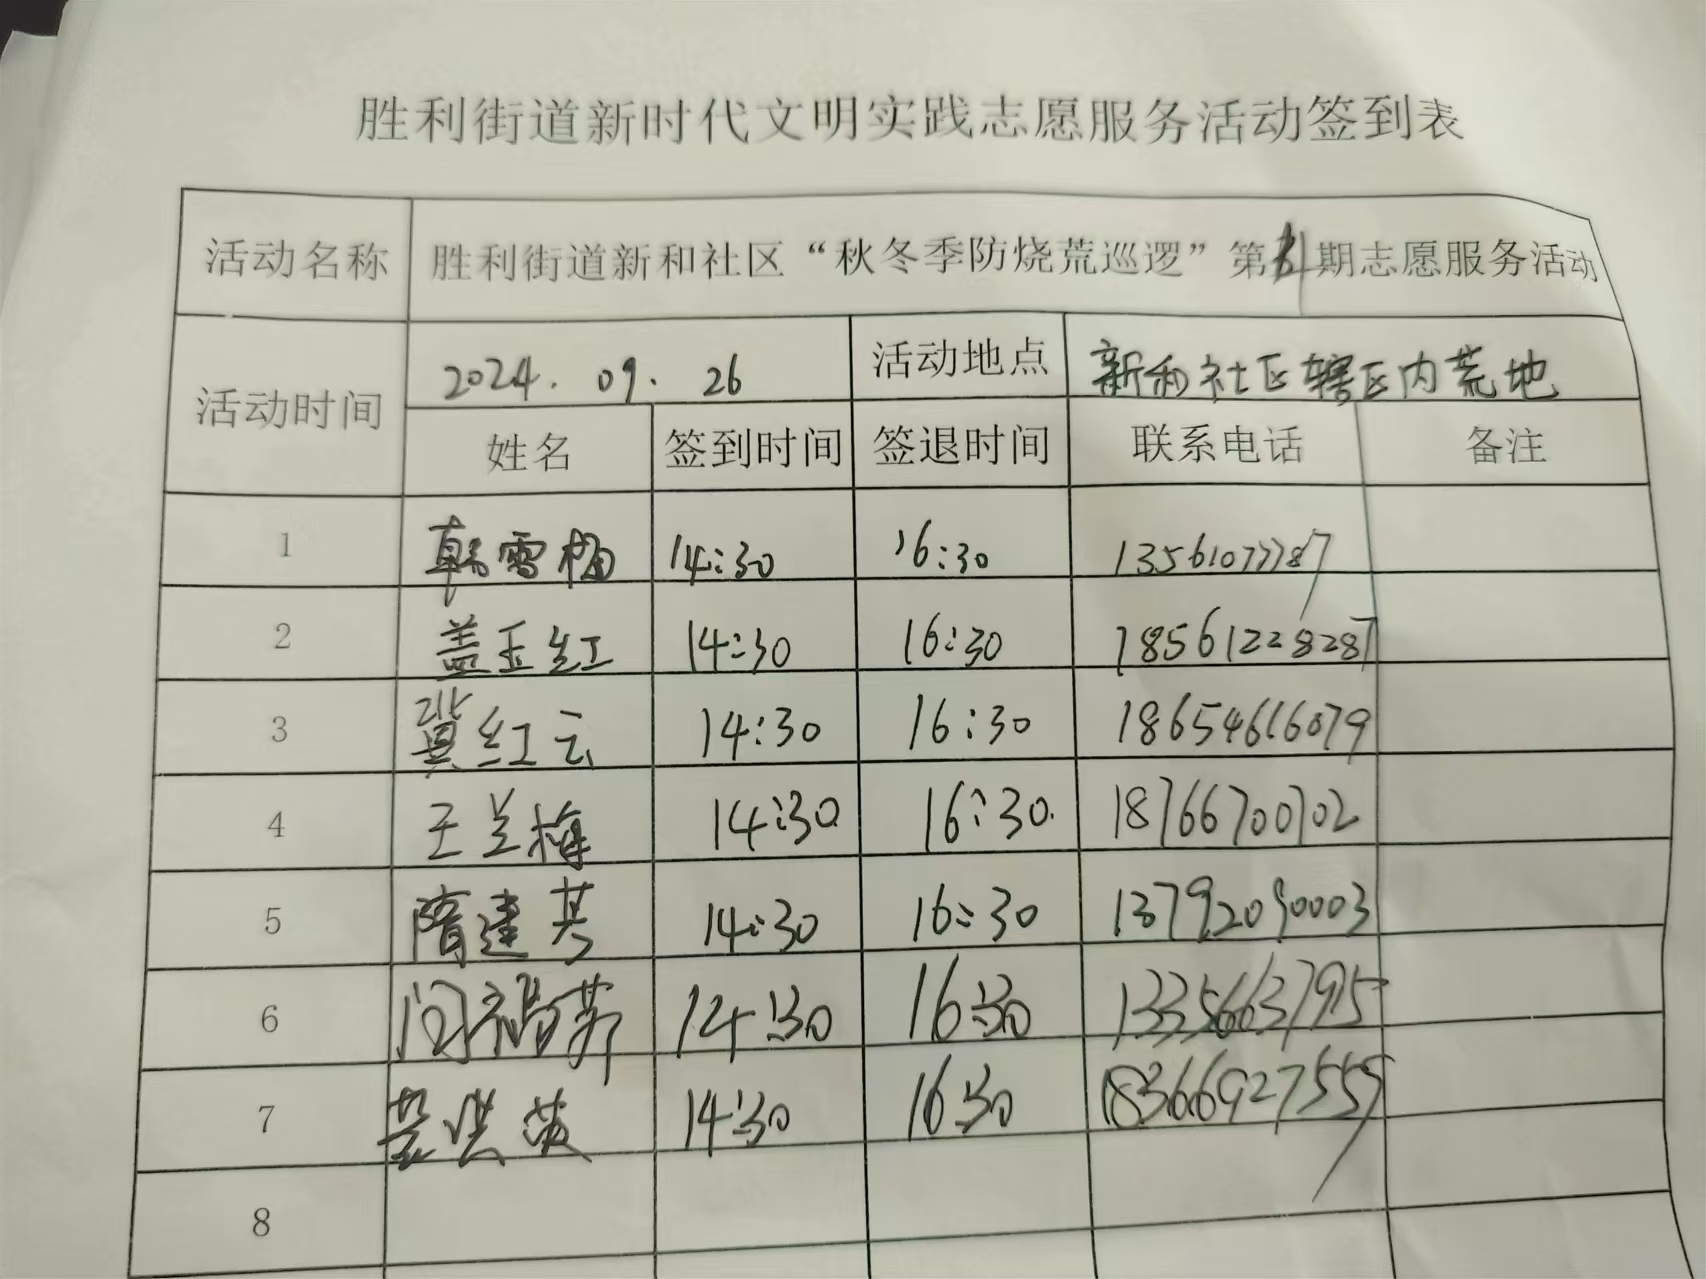 胜利街道新时代文明实践志愿服务活动签到表
活动名称 胜利街道新和社区“秋冬季防烧荒巡逻”第 期志愿服务活动
活动时间 2024.09.26 活动地点 新和社区辖区内荒地
姓名 签到时间 签退时间 联系电话 备注
1 韩雪梅 14:30 16:30 13561077787
2 盖玉红 14:30 16:30 18561228287
3 冀红云 14:30 16:30 18654616079
4 王兰梅 14:30 16:30 18766700702
5 隋建英 14:30 16:30 13792090003
6 14:30 16:30 13356637915
7 14:30 16:30 18366927555
8